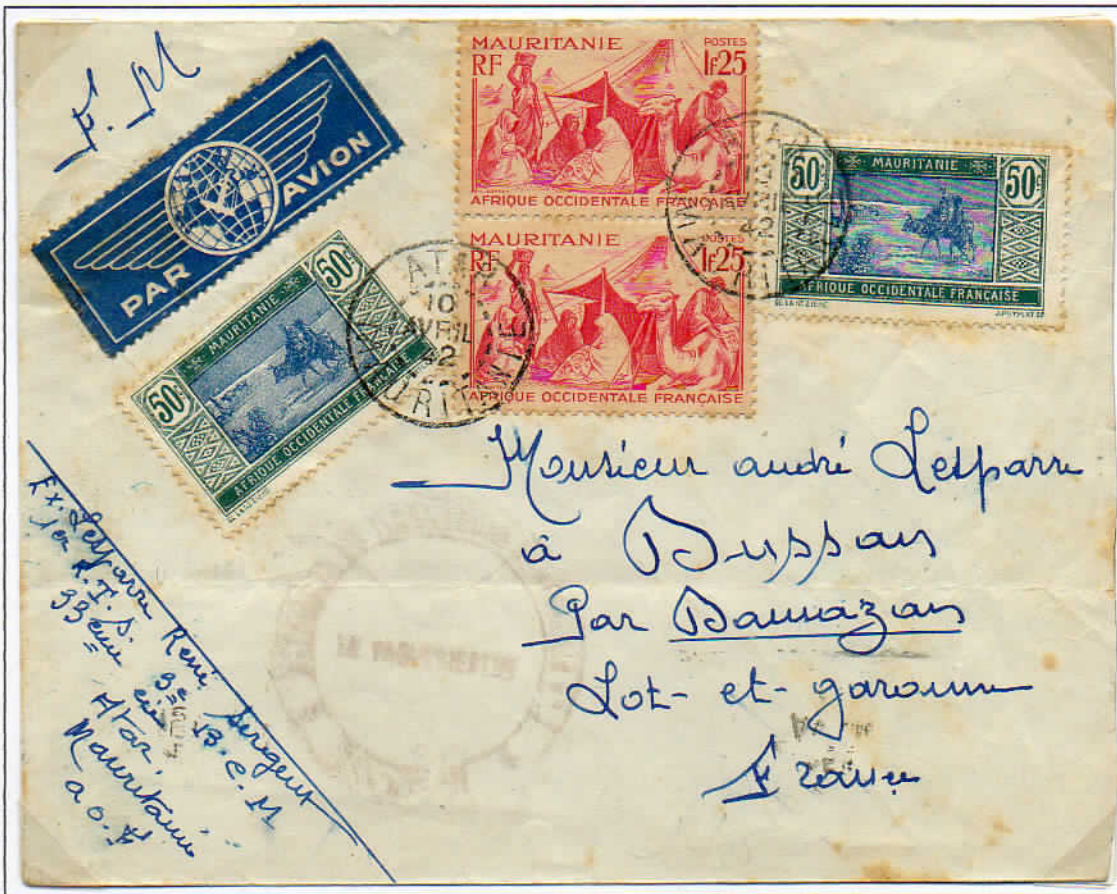 F. M
PAR AVION
MAURITANIE POSTES
RF 1F25
AFRIQUE OCCIDENTALE FRANÇAISE
MAURITANIE POSTES
RF 1F25
AFRIQUE OCCIDENTALE FRANÇAISE
50c MAURITANIE 50c
AFRIQUE OCCIDENTALE FRANÇAISE
50c MAURITANIE 50c
AFRIQUE OCCIDENTALE FRANÇAISE
ATAR
10
AVRIL
42
MAURITANIE
ATAR
AVRIL
42
MAURITANIE
Monsieur andré Lesparre
à Bussan
Par Damazan
Lot-et-garonne
France
Ex. Lesparre René Sergent
1er R.T.S. 3e B.C.M
33ème cie
Atar,
Mauritanie
a o. F